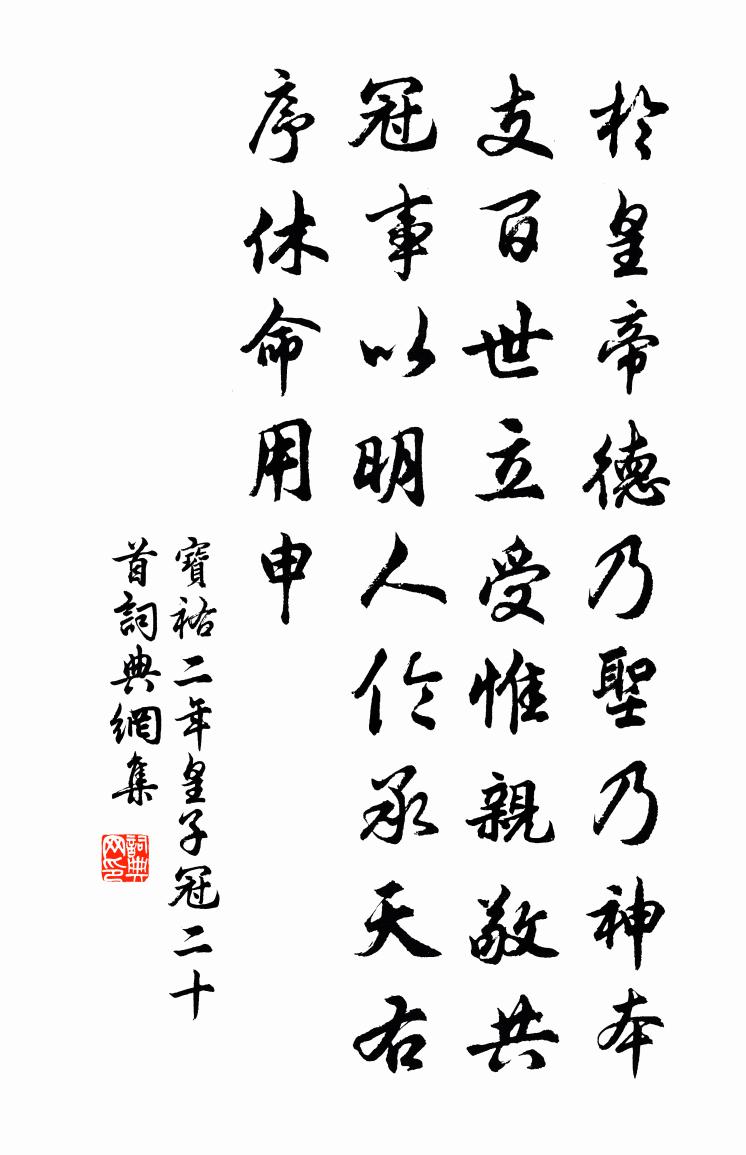 於皇帝德乃聖乃神本
支百世立受惟親敬共
冠事以明人倫承天右
序休命用申
寶祐二年皇子冠二十
首詞典網集
詞典
网印